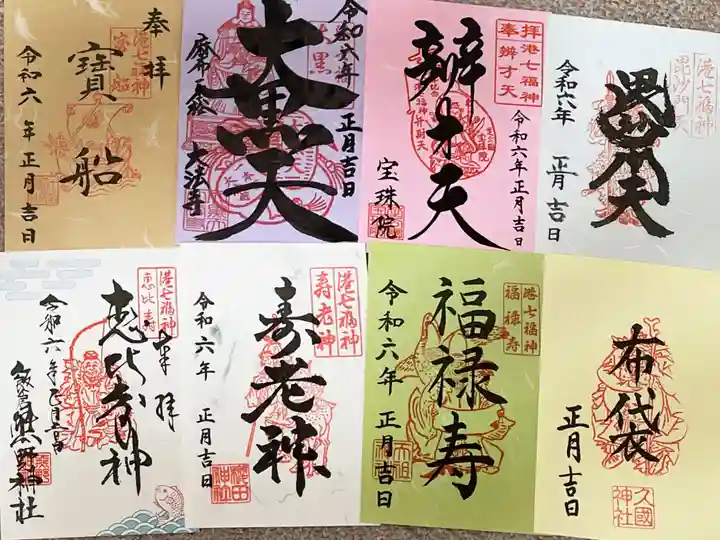 奉拝
港七福神
宝船
寶船
令和六年正月吉日
令和六年正月吉日
大黒
大黒天
麻布
大法寺
拝港七福神
奉辨才天
辨才天
令和六年正月吉日
宝珠院
港七福神
毘沙門天
毘沙門天
令和六年
正月吉日
港七福神
恵比寿
奉拝
恵比寿神
令和六年正月吉日
熊野神社
港七福神
寿老神
寿老神
令和六年
正月吉日
櫻田神社
港七福神
福禄寿
福禄寿
令和六年正月吉日
布袋
正月吉日
久國神社